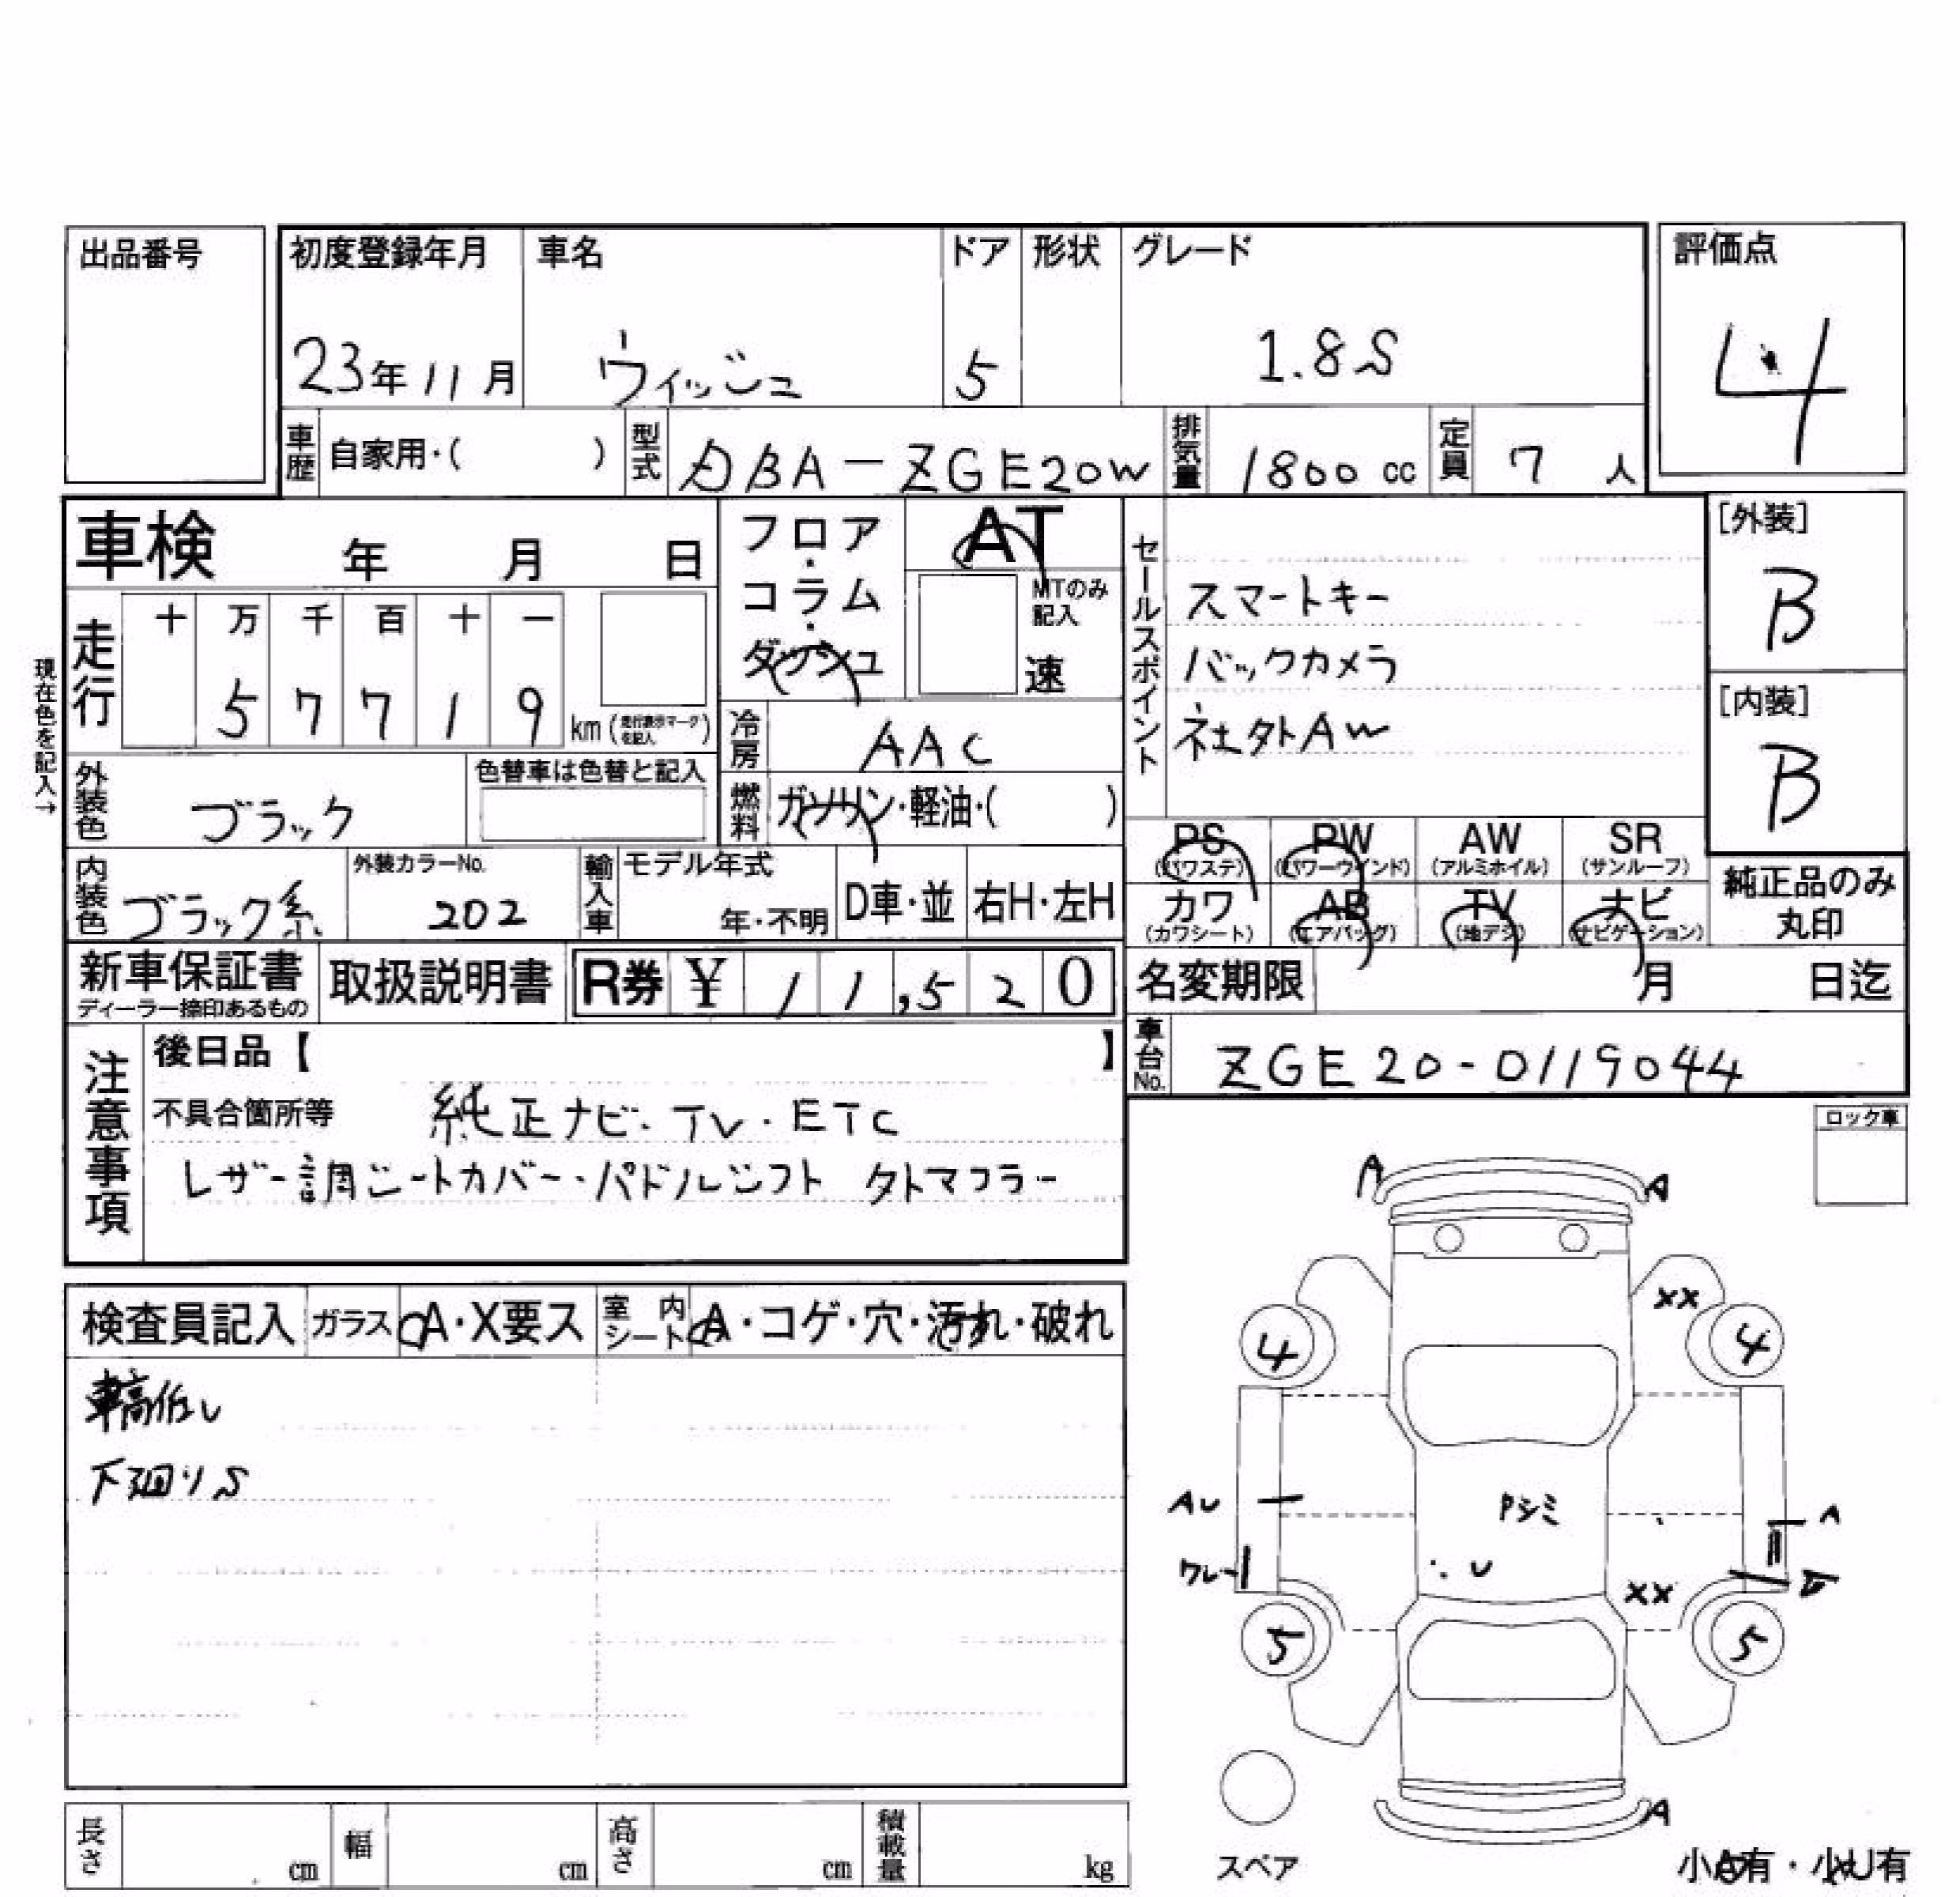 出品番号
初度登録年月 車名 ドア 形状 グレード 評価点
23年11月 ウィッシュ 5 1.8S 4
車歴 自家用・( ) 型式 DBA-ZGE20W 排気量 1800cc 定員 7人
車検 年 月 日
フロア・コラム・ダッシュ AT
MTのみ記入
速
現在色を記入→
走行 十 万 千 百 十 一
5 7 7 1 9 km (走行表示マークを記入)
冷房 AAC
燃料 ガソリン・軽油・( )
外装色 ブラック 色替車は色替と記入
内装色 ブラック系 外装カラーNo. 202 輸入車 モデル年式 年・不明 D車・並 右H・左H
セールスポイント
スマートキー
バックカメラ
社外AW
[外装]
B
[内装]
B
PS (パワステ) PW (パワーウインド) AW (アルミホイル) SR (サンルーフ)
カワ (カワシート) AB (エアバッグ) TV (地デジ) ナビ (ナビゲーション)
純正品のみ
丸印
新車保証書 ディーラー捺印あるもの 取扱説明書 R券 ¥ 11,520
名変期限 月 日迄
車台No. ZGE20-0119044
注意事項
後日品【 】
不具合箇所等 純正ナビ・TV・ETC
レザー調シートカバー・パドルシフト タトマフラー
ロック車
検査員記入 ガラス A・X要ス 室内シート A・コゲ・穴・汚れ・破れ
車高低し
下廻りS
A A
XX
4 4
AU Pシミ A
ワレ U XX
5 5
スペア A
小A有・小U有
長さ cm 幅 cm 高さ cm 積載量 kg